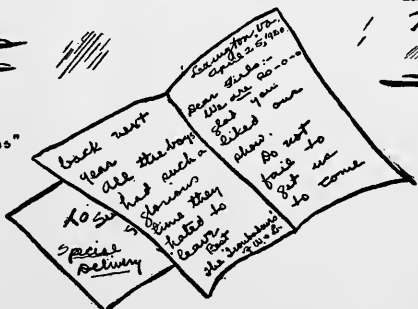 Lexington, Va.
April 25, 1920.
Dear Girls:-
We are so-o-o
glad you
liked our
show.
Do not
fail to
get us
to come
back next
year
All the boys
had such a
glorious
time they
hated to
leave
Best
The "Troubadours"
To Su
Special
Delivery
s"